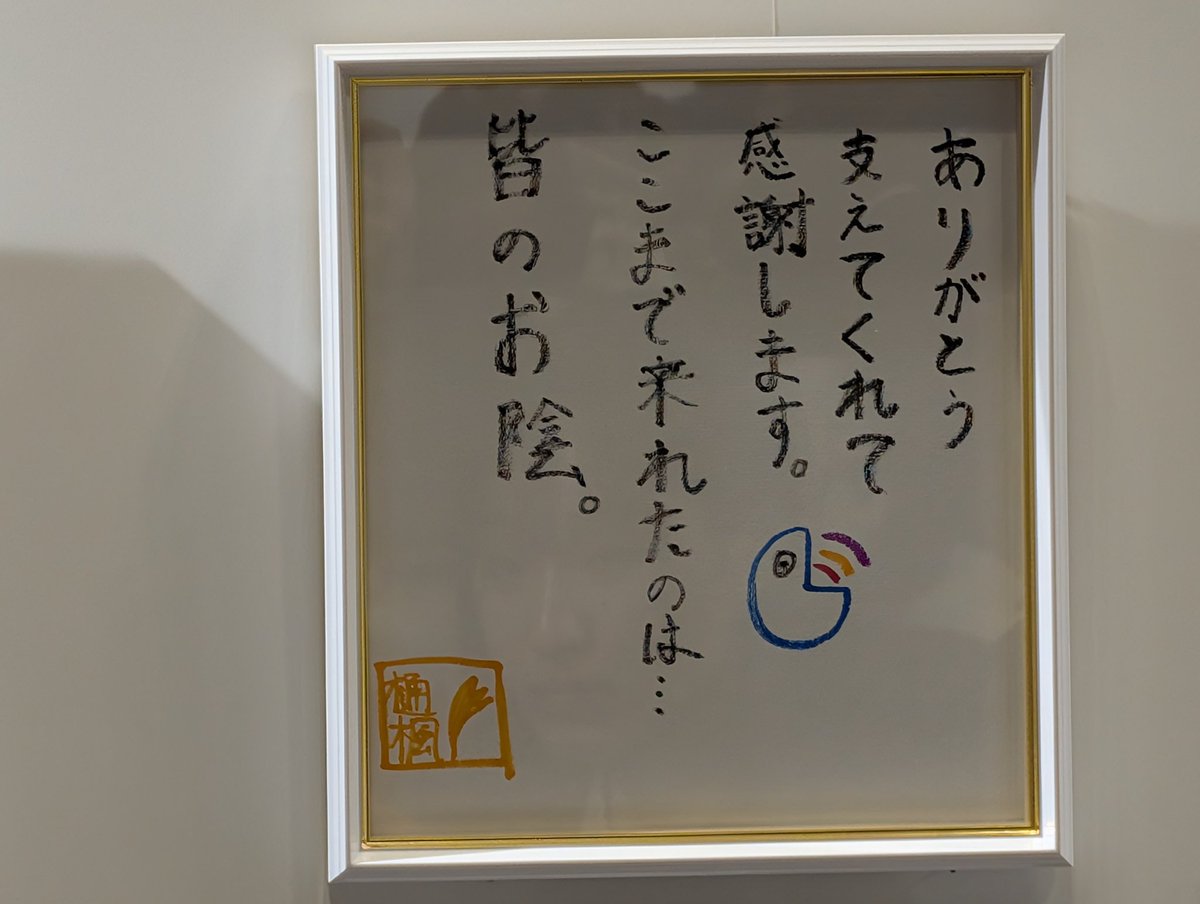 ありがとう
支えてくれて
感謝します。
ここまで来れたのは…
皆のお陰。
樋楓